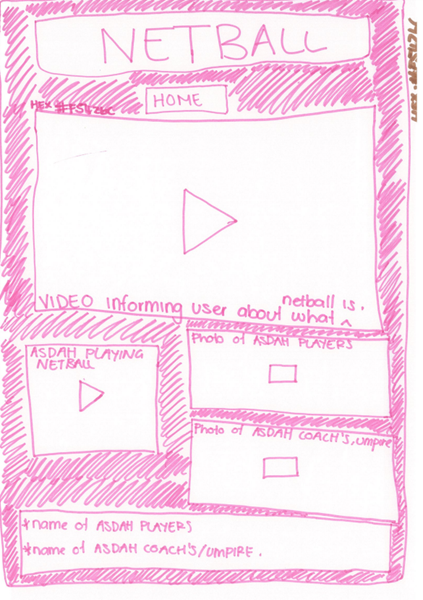 NETBALL
HOME
VIDEO informing user about what netball is.
ASDAH PLAYING
NETBALL
Photo of ASDAH PLAYERS
Photo of ASDAH COACH'S, umpire
*name of ASDAH PLAYERS
*name of ASDAH COACH'S/UMPIRE.